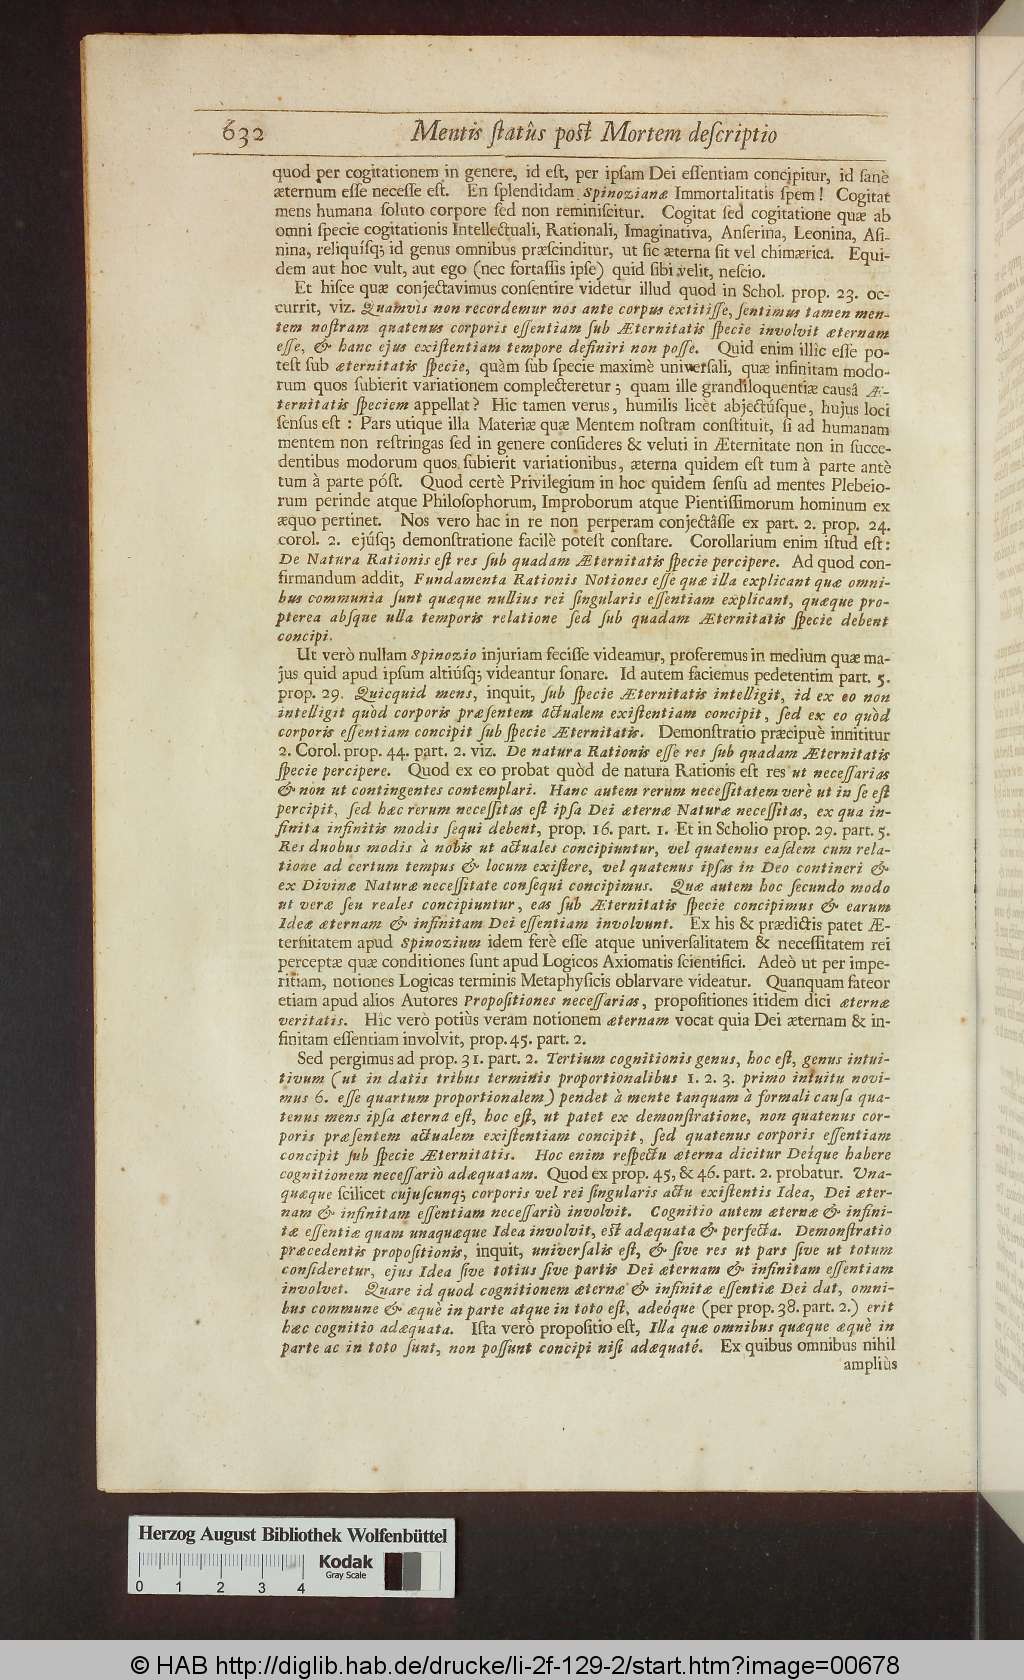 632 Mentis ſtatûs poſt Mortem deſcriptio
quod per cogitationem in genere, id eſt, per ipſam Dei eſſentiam concipitur, id ſanè
æternum eſſe neceſſe eſt. En ſplendidam Spinozianæ Immortalitatis ſpem! Cogitat
mens humana ſoluto corpore ſed non reminiſcitur. Cogitat ſed cogitatione quæ ab
omni ſpecie cogitationis Intellectuali, Rationali, Imaginativa, Anſerina, Leonina, Aſi-
nina, reliquíſq; id genus omnibus præſcinditur, ut ſic æterna ſit vel chimærica. Equi-
dem aut hoc vult, aut ego (nec fortaſſis ipſe) quid ſibi velit, neſcio.
Et hiſce quæ conjectavimus conſentire videtur illud quod in Schol. prop. 23. oc-
currit, viz. Quamvìs non recordemur nos ante corpus extitiſſe, ſentimus tamen men-
tem noſtram quatenus corporis eſſentiam ſub Æternitatis ſpecie involvit æternam
eſſe, & hanc ejus exiſtentiam tempore definiri non poſſe. Quid enim illîc eſſe po-
teſt ſub æternitatis ſpecie, quàm ſub ſpecie maximè univerſali, quæ infinitam modo-
rum quos ſubierit variationem complecteretur; quam ille grandiloquentiæ causâ Æ-
ternitatis ſpeciem appellat? Hic tamen verus, humilis licèt abjectúſque, hujus loci
ſenſus eſt: Pars utique illa Materiæ quæ Mentem noſtram conſtituit, ſi ad humanam
mentem non reſtringas ſed in genere conſideres & veluti in Æternitate non in ſucce-
dentibus modorum quos ſubierit variationibus, æterna quidem eſt tum à parte antè
tum à parte póſt. Quod certè Privilegium in hoc quidem ſenſu ad mentes Plebeio-
rum perinde atque Philoſophorum, Improborum atque Pientiſſimorum hominum ex
æquo pertinet. Nos vero hac in re non perperam conjectâſſe ex part. 2. prop. 24.
corol. 2. ejúſq; demonſtratione facilè poteſt conſtare. Corollarium enim iſtud eſt:
De Natura Rationis eſt res ſub quadam Æternitatis ſpecie percipere. Ad quod con-
firmandum addit, Fundamenta Rationis Notiones eſſe quæ illa explicant quæ omni-
bus communia ſunt quæque nullius rei ſingularis eſſentiam explicant, quæque pro-
pterea abſque ulla temporis relatione ſed ſub quadam Æternitatis ſpecie debent
concipi.
Ut verò nullam Spinozio injuriam feciſſe videamur, proferemus in medium quæ ma-
jus quid apud ipſum altiúſq; videantur ſonare. Id autem faciemus pedetentim part. 5.
prop. 29. Quicquid mens, inquit, ſub ſpecie Æternitatis intelligit, id ex eo non
intelligit quòd corporis præſentem actualem exiſtentiam concipit, ſed ex eo quòd
corporis eſſentiam concipit ſub ſpecie Æternitatis. Demonſtratio præcipuè innititur
2. Corol. prop. 44. part. 2. viz. De natura Rationis eſſe res ſub quadam Æternitatis
ſpecie percipere. Quod ex eo probat quòd de natura Rationis eſt res ut neceſſarias
& non ut contingentes contemplari. Hanc autem rerum neceſſitatem verè ut in ſe eſt
percipit, ſed hæc rerum neceſſitas eſt ipſa Dei æternæ Naturæ neceſſitas, ex qua in-
finita infinitis modis ſequi debent, prop. 16. part. 1. Et in Scholio prop. 29. part. 5.
Res duobus modis à nobis ut actuales concipiuntur, vel quatenus eaſdem cum rela-
tione ad certum tempus & locum exiſtere, vel quatenus ipſas in Deo contineri &
ex Divinæ Naturæ neceſſitate conſequi concipimus. Quæ autem hoc ſecundo modo
ut veræ ſeu reales concipiuntur, eas ſub Æternitatis ſpecie concipimus & earum
Ideæ æternam & infinitam Dei eſſentiam involvunt. Ex his & prædictis patet Æ-
ternitatem apud Spinozium idem ferè eſſe atque univerſalitatem & neceſſitatem rei
perceptæ quæ conditiones ſunt apud Logicos Axiomatis ſcientifici. Adeò ut per impe-
ritiam, notiones Logicas terminis Metaphyſicis oblarvare videatur. Quanquam fateor
etiam apud alios Autores Propoſitiones neceſſarias, propoſitiones itidem dici æternæ
veritatis. Hîc verò potiùs veram notionem æternam vocat quia Dei æternam & in-
finitam eſſentiam involvit, prop. 45. part. 2.
Sed pergimus ad prop. 31. part. 2. Tertium cognitionis genus, hoc eſt, genus intui-
tivum (ut in datis tribus terminis proportionalibus 1. 2. 3. primo intuitu novi-
mus 6. eſſe quartum proportionalem) pendet à mente tanquam à formali cauſa qua-
tenus mens ipſa æterna eſt, hoc eſt, ut patet ex demonſtratione, non quatenus cor-
poris præſentem actualem exiſtentiam concipit, ſed quatenus corporis eſſentiam
concipit ſub ſpecie Æternitatis. Hoc enim reſpectu æterna dicitur Deíque habere
cognitionem neceſſariò adæquatam. Quod ex prop. 45, & 46. part. 2. probatur. Una-
quæque ſcilicet cujuſcunq; corporis vel rei ſingularis actu exiſtentis Idea, Dei æter-
nam & infinitam eſſentiam neceſſariò involvit. Cognitio autem æternæ & infini-
tæ eſſentiæ quam unaquæque Idea involvit, eſt adæquata & perfecta. Demonſtratio
præcedentis propoſitionis, inquit, univerſalis eſt, & ſive res ut pars ſive ut totum
conſideretur, ejus Idea ſive totius ſive partis Dei æternam & infinitam eſſentiam
involvet. Quare id quod cognitionem æternæ & infinitæ eſſentiæ Dei dat, omni-
bus commune & æquè in parte atque in toto eſt, adeóque (per prop. 38. part. 2.) erit
hæc cognitio adæquata. Iſta verò propoſitio eſt, Illa quæ omnibus quæque æquè in
parte ac in toto ſunt, non poſſunt concipi niſi adæquaté. Ex quibus omnibus nihil
ampliùs
Herzog August Bibliothek Wolfenbüttel
Kodak
Gray Scale
0 1 2 3 4
© HAB http://diglib.hab.de/drucke/li-2f-129-2/start.htm?image=00678